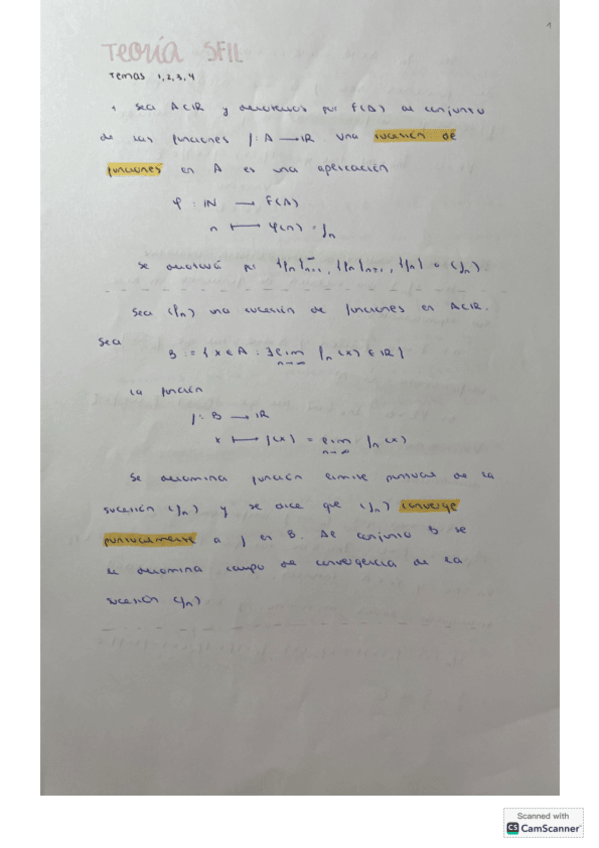 1
Teoría SFIL
Temas 1, 2, 3, 4
1 Sea A⊂ℝ y denotemos por F(A) al conjunto
de las funciones f: A → ℝ una sucesión de
funciones en A es una aplicación
φ : ℕ → F(A)
n ⟼ φ(n) = fₙ
Se denotará por {fₙ}ₙ₌₁^∞, {fₙ}ₙ≥₁, {fₙ} o (fₙ).
Sea (fₙ) una sucesión de funciones en A⊂ℝ.
Sea
B := { x ∈ A : ∃ lim n→∞ fₙ(x) ∈ ℝ }
La función
f: B → ℝ
x ⟼ f(x) = lim n→∞ fₙ(x)
Se denomina función límite puntual de la
sucesión (fₙ) y se dice que (fₙ) converge
puntualmente a f en B. Al conjunto B se
le denomina campo de convergencia de la
sucesión (fₙ)
Scanned with
CS CamScanner